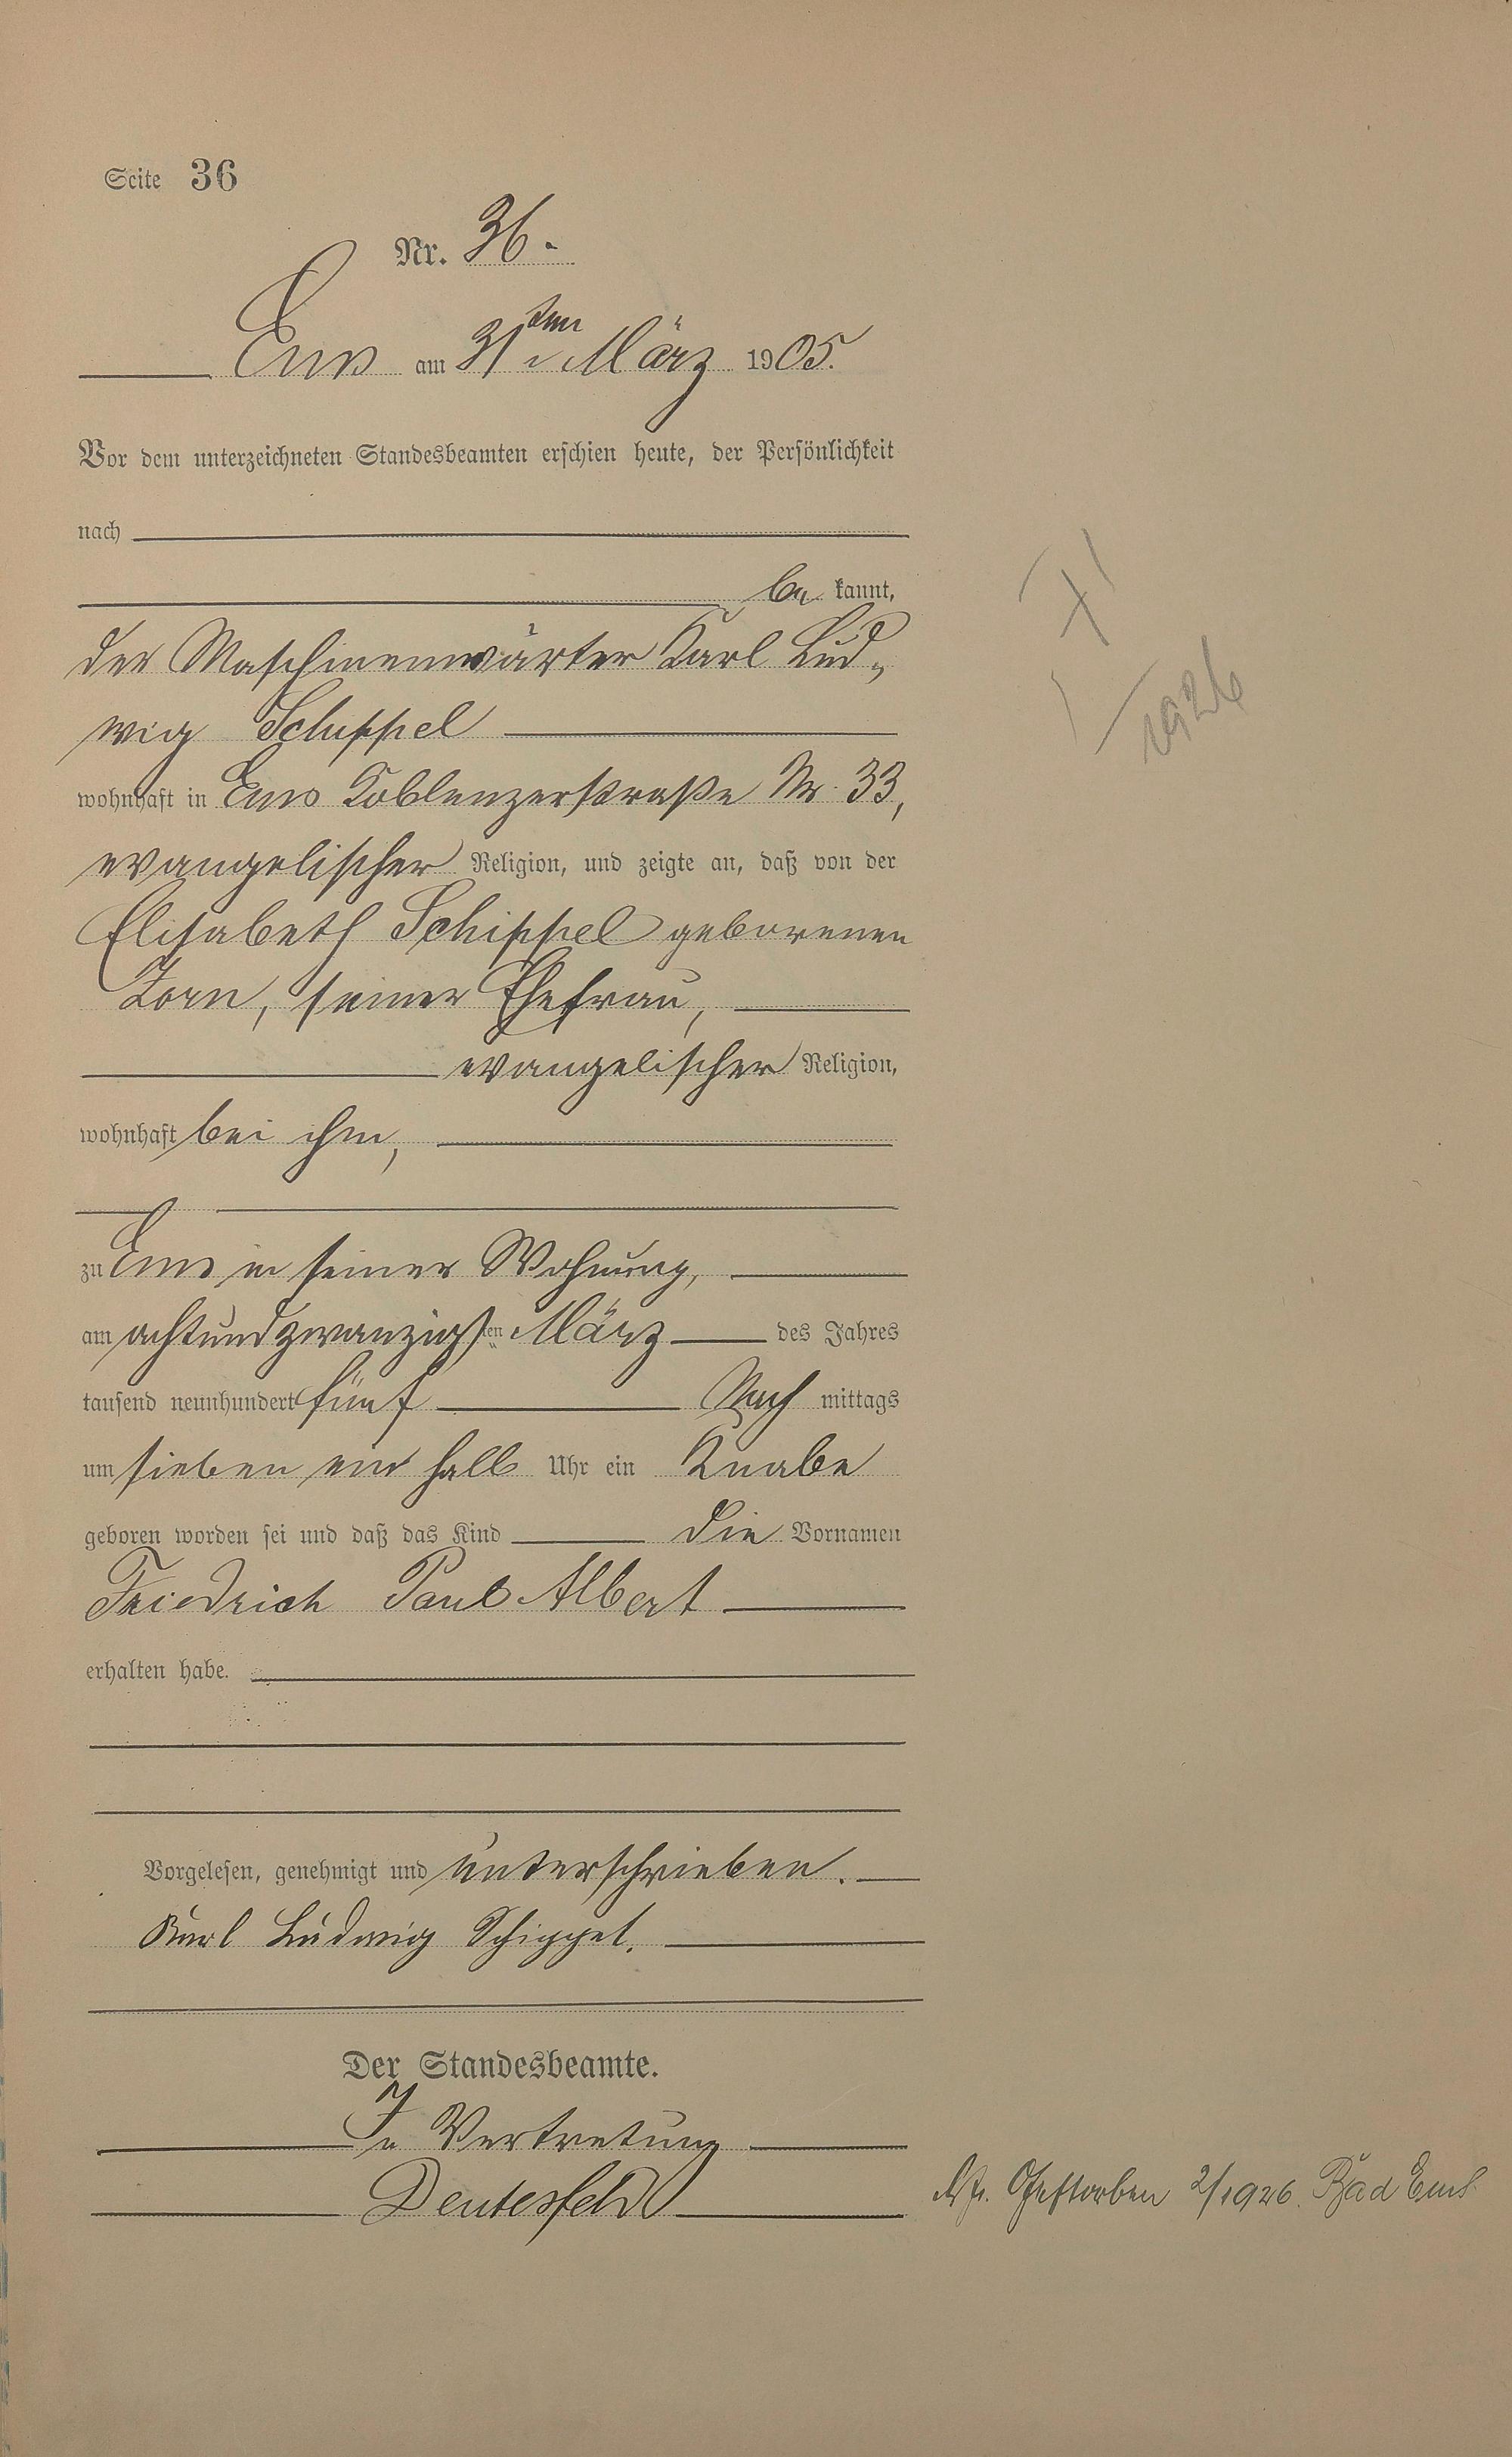 Seite 36
Nr. 36.
Ems am 31ten März 1905.
Vor dem unterzeichneten Standesbeamten erschien heute, der Persönlichkeit
nach
be kannt,
der Maschinenwärter Karl Lud„
wig Schippel
wohnhaft in Ems Coblenzerstraße Nr. 33,
evangelischer Religion, und zeigte an, daß von der
Elisabeth Schippel geborenen
Zorn, seiner Ehefrau,
evangelischer Religion,
wohnhaft bei ihm,
zu Ems in seiner Wohnung,
am achtundzwanzigsten März des Jahres
tausend neunhundert fünf Nach mittags
um sieben ein halb Uhr ein Knabe
geboren worden sei und daß das Kind die Vornamen
Friedrich Paul Albert
erhalten habe.
Vorgelesen, genehmigt und unterschrieben.
Karl Ludwig Schippel.
Der Standesbeamte.
In Vertretung
Deutesfeld
1926
Gestorben 2/1926. Bad Ems.